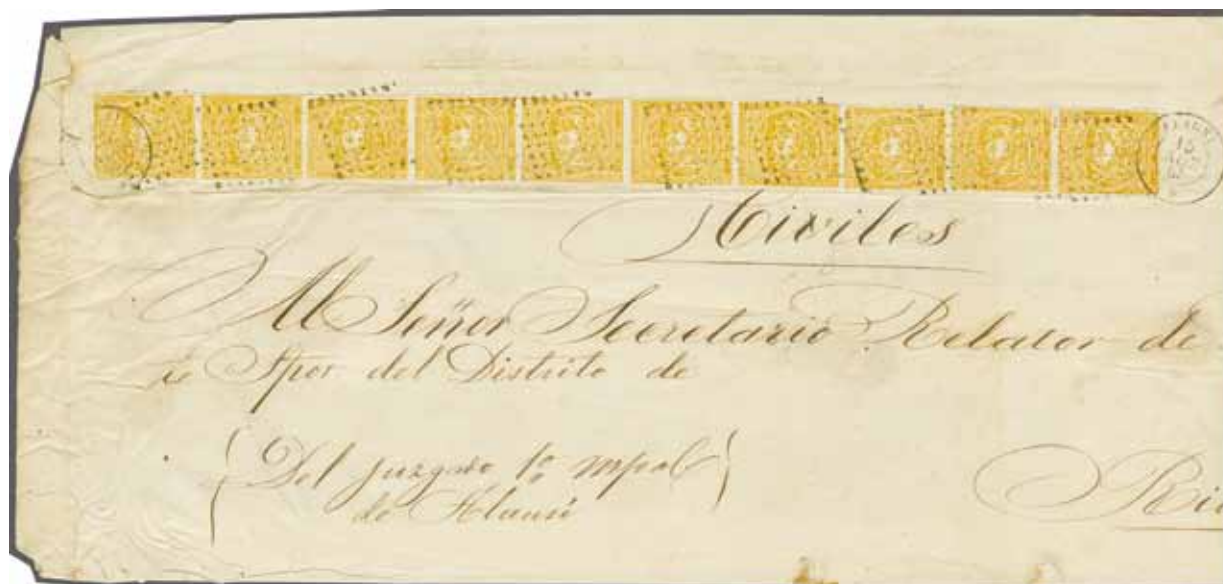 Civiles
Al Señor Secretario Relator de
Spor. del Distrito de
Del juzgado 1º mpal
de Alausí